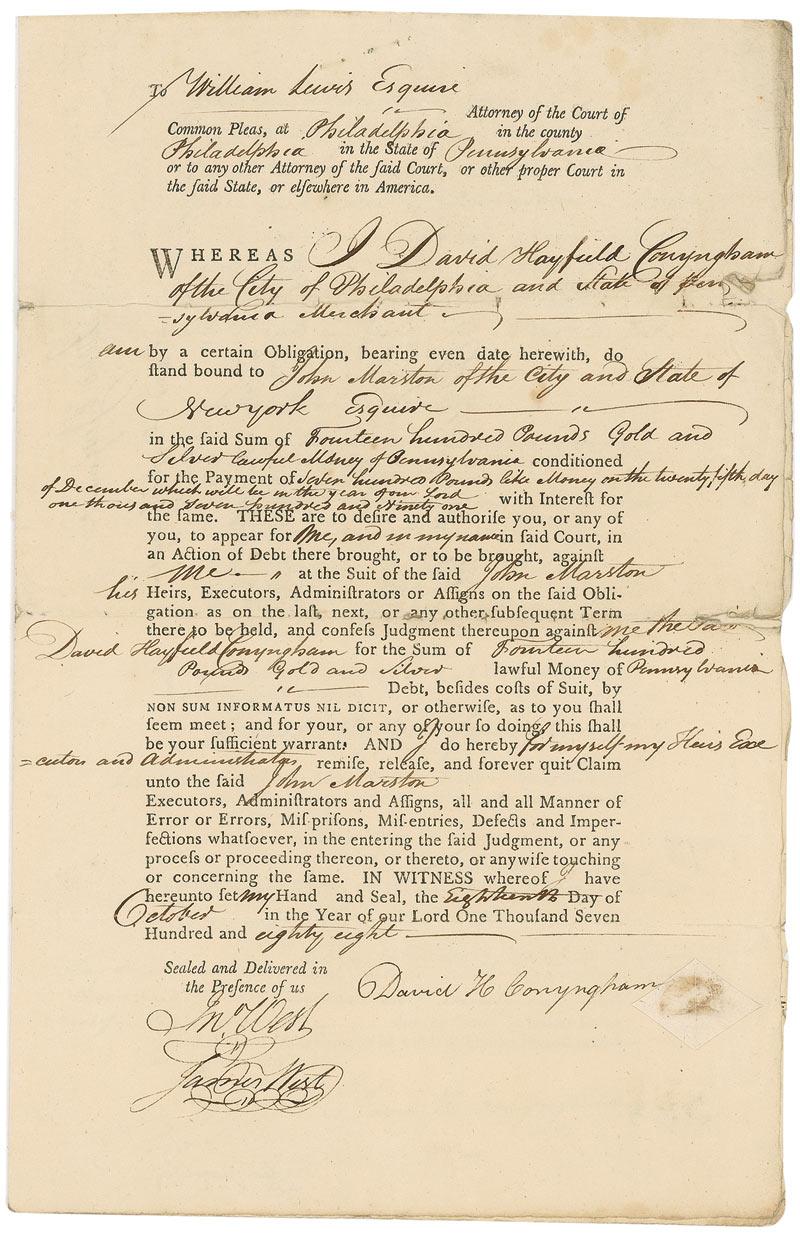 To William Lewis Esquire
Attorney of the Court of
Common Pleas, at Philadelphia in the county
Philadelphia in the State of Pennsylvania
or to any other Attorney of the ſaid Court, or other proper Court in
the ſaid State, or elſewhere in America.
WHEREAS I David Hayfield Conyngham
of the City of Philadelphia and State of Pen
=sylvania Merchant
am by a certain Obligation, bearing even date herewith, do
ſtand bound to John Marston of the City and State of
New york Esquire
in the ſaid Sum of Fourteen hundred Pounds Gold and
Silver lawful Money of Pennsylvania conditioned
for the Payment of Seven hundred Pounds like Money on the twenty fifth day
of December which will be in the year of our Lord
one thousand Seven hundred and Ninety one with Intereſt for
the ſame. THESE are to deſire and authoriſe you, or any of
you, to appear for Me, and in my name in ſaid Court, in
an Action of Debt there brought, or to be brought, againſt
Me at the Suit of the ſaid John Marston
his Heirs, Executors, Adminiſtrators or Aſſigns on the ſaid Obli-
gation as on the laſt, next, or any other ſubſequent Term
there to be held, and confeſs Judgment thereupon againſt me the Said
David Hayfield Conyngham for the Sum of Fourteen hundred
Pounds Gold and Silver lawful Money of Pennsylvania
Debt, beſides coſts of Suit, by
NON SUM INFORMATUS NIL DICIT, or otherwiſe, as to you ſhall
ſeem meet; and for your, or any of your ſo doing, this ſhall
be your ſufficient warrant. AND I do hereby for myself my Heirs Exe
=cutors and Administrators remiſe, releaſe, and forever quit Claim
unto the ſaid John Marston
Executors, Adminiſtrators and Aſſigns, all and all Manner of
Error or Errors, Miſ-priſons, Miſ-entries, Defects and Imper-
fections whatſoever, in the entering the ſaid Judgment, or any
proceſs or proceeding thereon, or thereto, or anywiſe touching
or concerning the ſame. IN WITNESS whereof I have
hereunto ſet my Hand and Seal, the Eighteenth Day of
October in the Year of our Lord One Thouſand Seven
Hundred and eighty eight
Sealed and Delivered in
the Preſence of us
David H Conyngham
Jno. West
James West